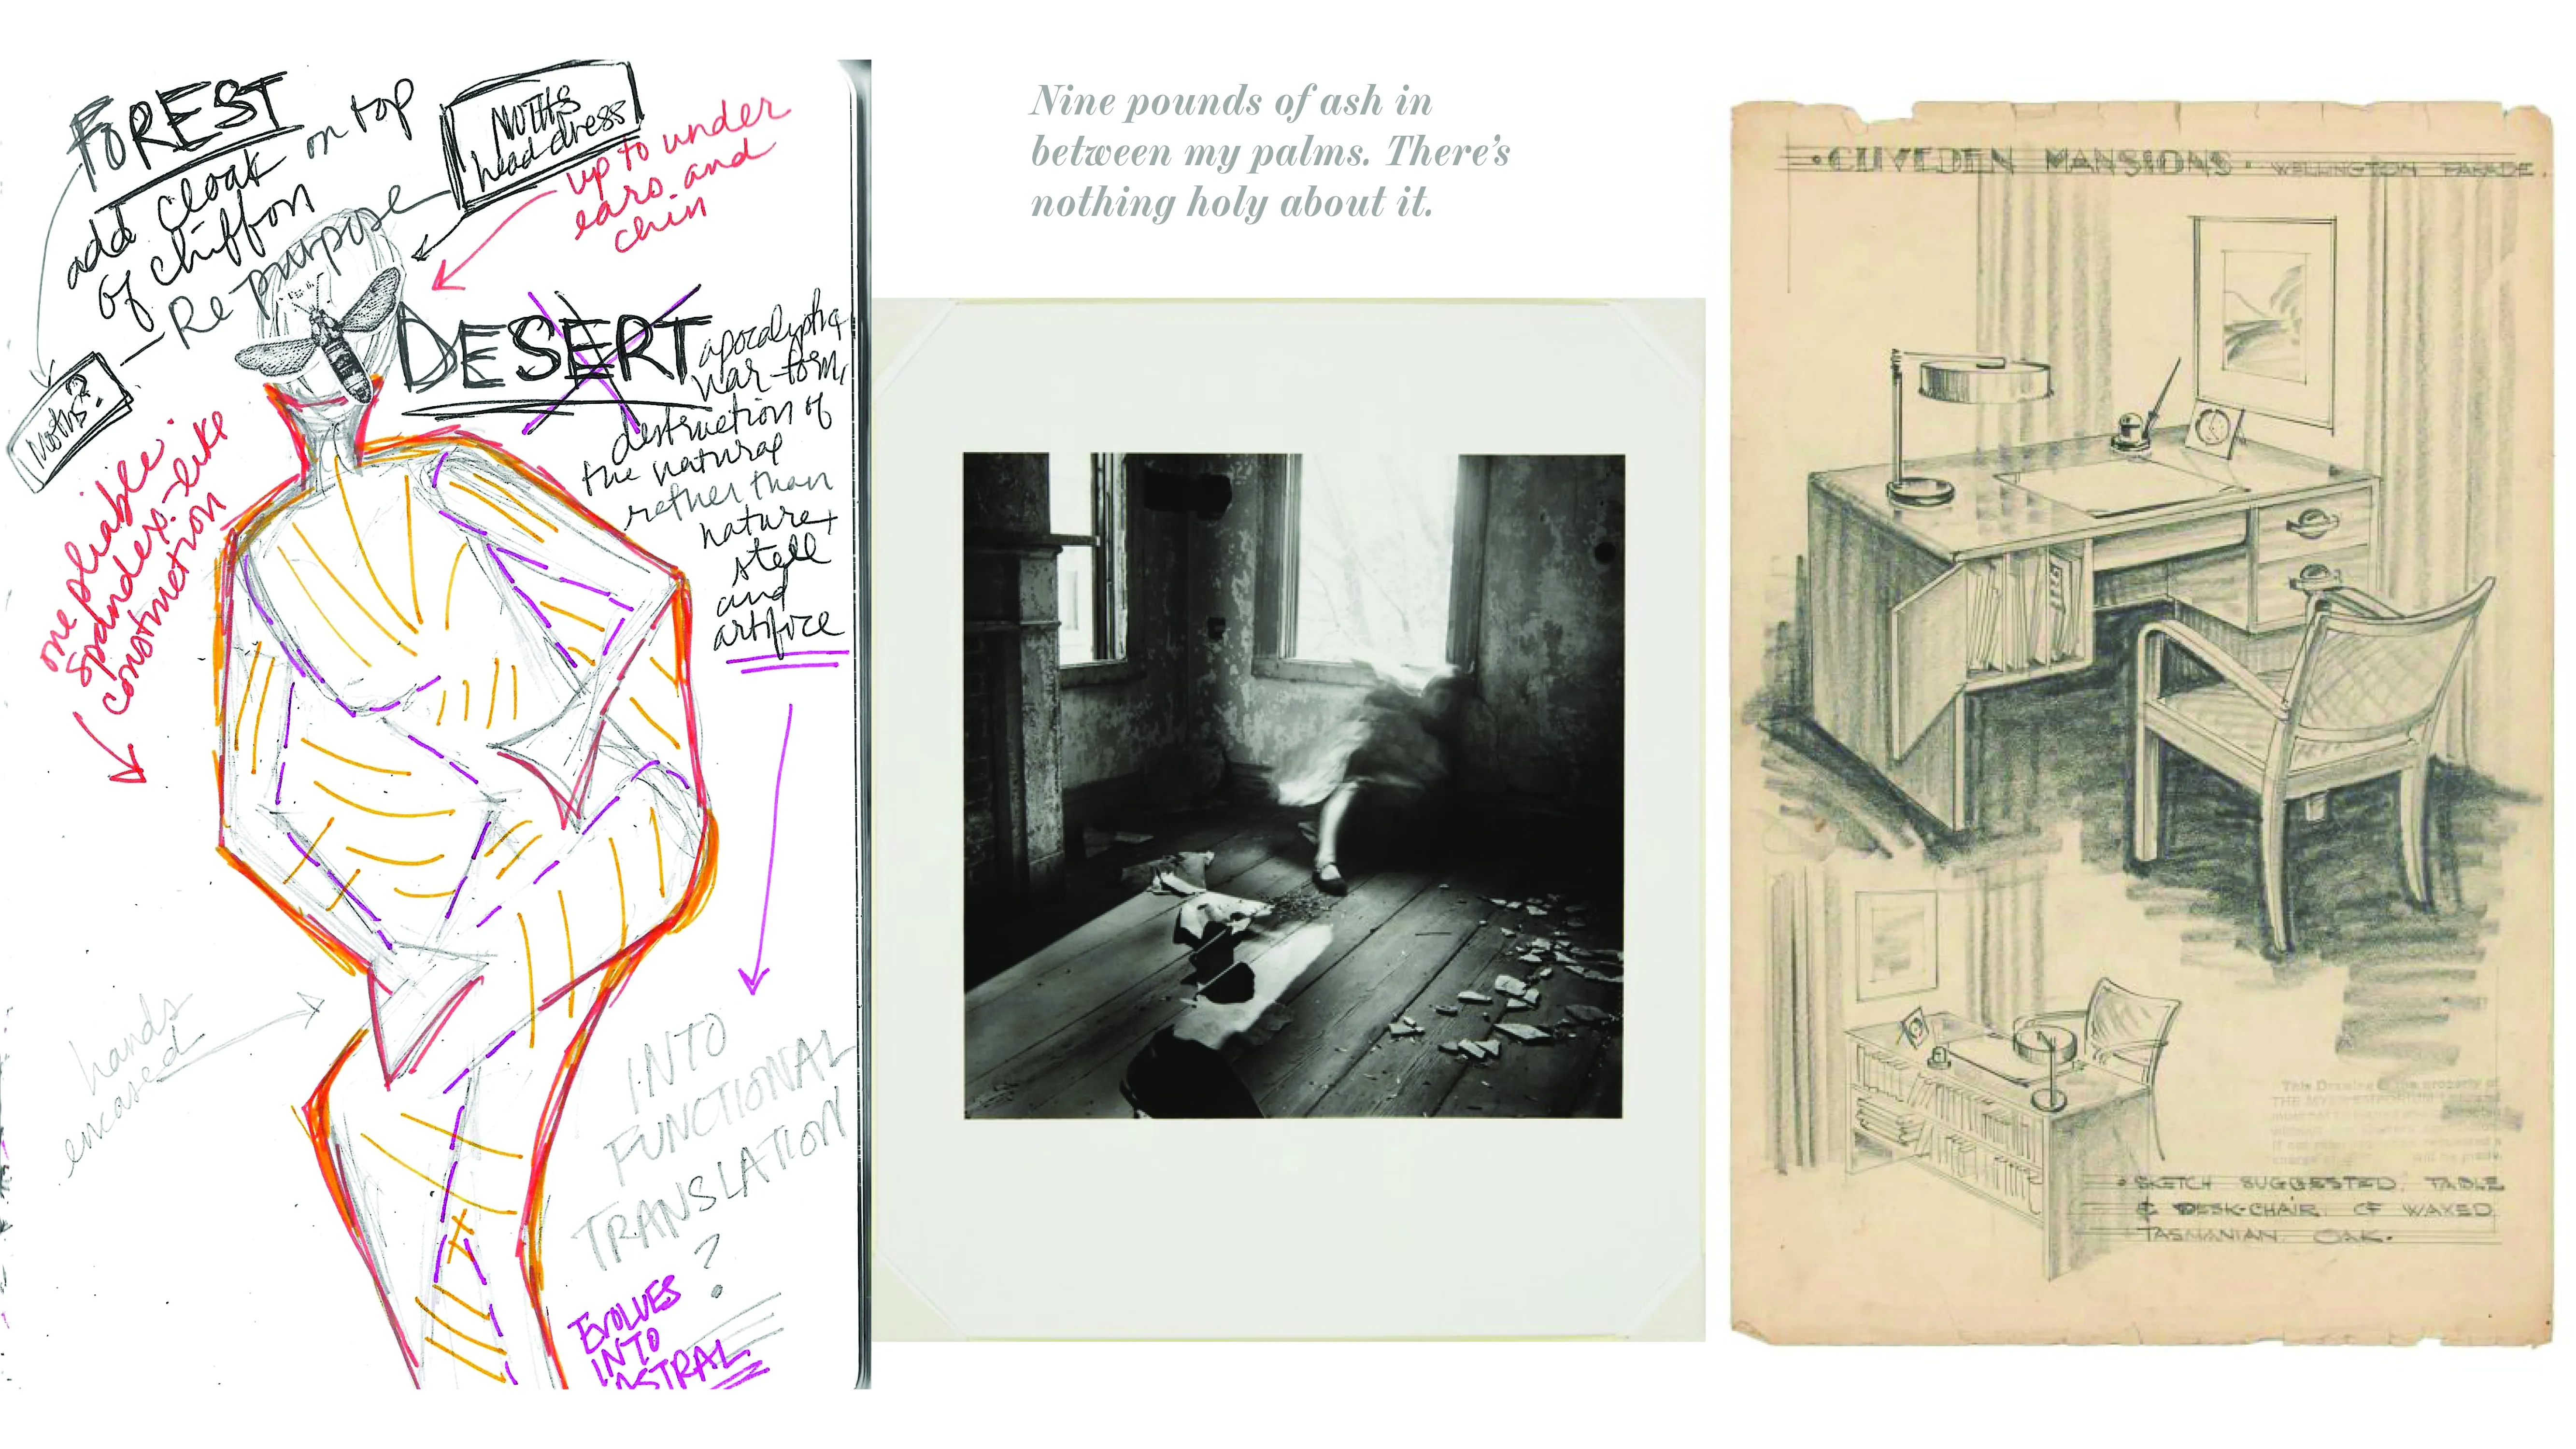 FOREST
add cloak on top
of chiffon
Repurpose
Moths?
Moths
head dress
up to under
ears and
chin
DESERT
apocalyptic
war-torn,
destruction of
the natural
rether than
nature +
stell
and
artifice
one pliable
spandex-like
construction
hands
encased
INTO
FUNCTIONAL
TRANSLATION
?
EVOLVES
INTO
ASTRAL
Nine pounds of ash in
between my palms. There's
nothing holy about it.
• CLIVEDEN MANSIONS • WELLINGTON PARADE.
This Drawing is the property of
• SKETCH SUGGESTED TABLE
& DESK-CHAIR OF WAXED
TASMANIAN OAK.